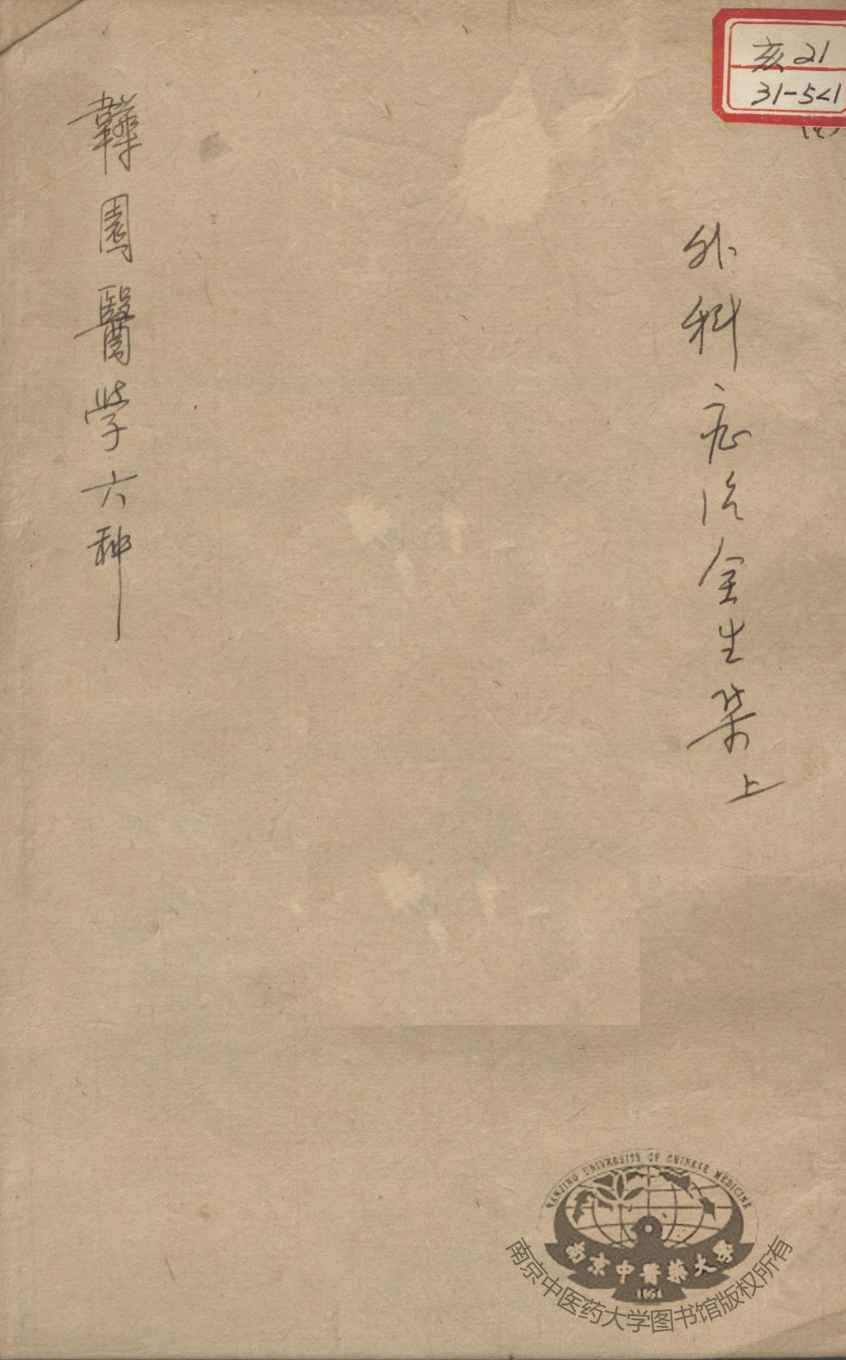 亥21
31-521
外科症治全生集上
韡園醫学六种
NANJING UNIVERSITY OF CHINESE MEDICINE
南京中醫藥大學
1954
南京中医药大学图书馆版权所有